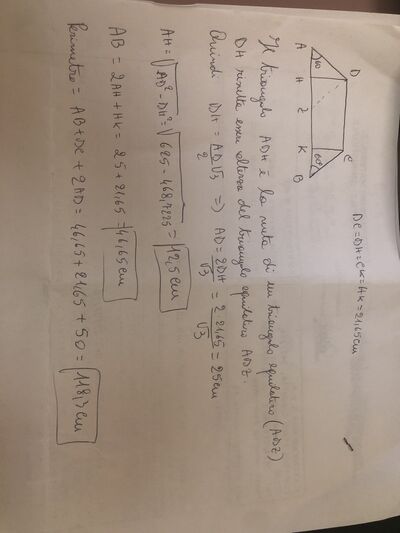 D C
60° 60°
A H Z K B
DC=DH=CK=HK=21,65cm
Il triangolo ADH è la metà di un triangolo equilatero (ADZ)
DH risulta essere altezza del triangolo equilatero ADZ.
Quindi DH = AD√3/2 => AD = 2DH/√3 = 2·21,65/√3 = 25cm
AH = √AD²-DH² = √625-468,7225 = 12,5cm
AB = 2AH+HK = 25+21,65 = 46,65cm
Perimetro = AB+DC+2AD = 46,65+21,65+50 = 118,3cm